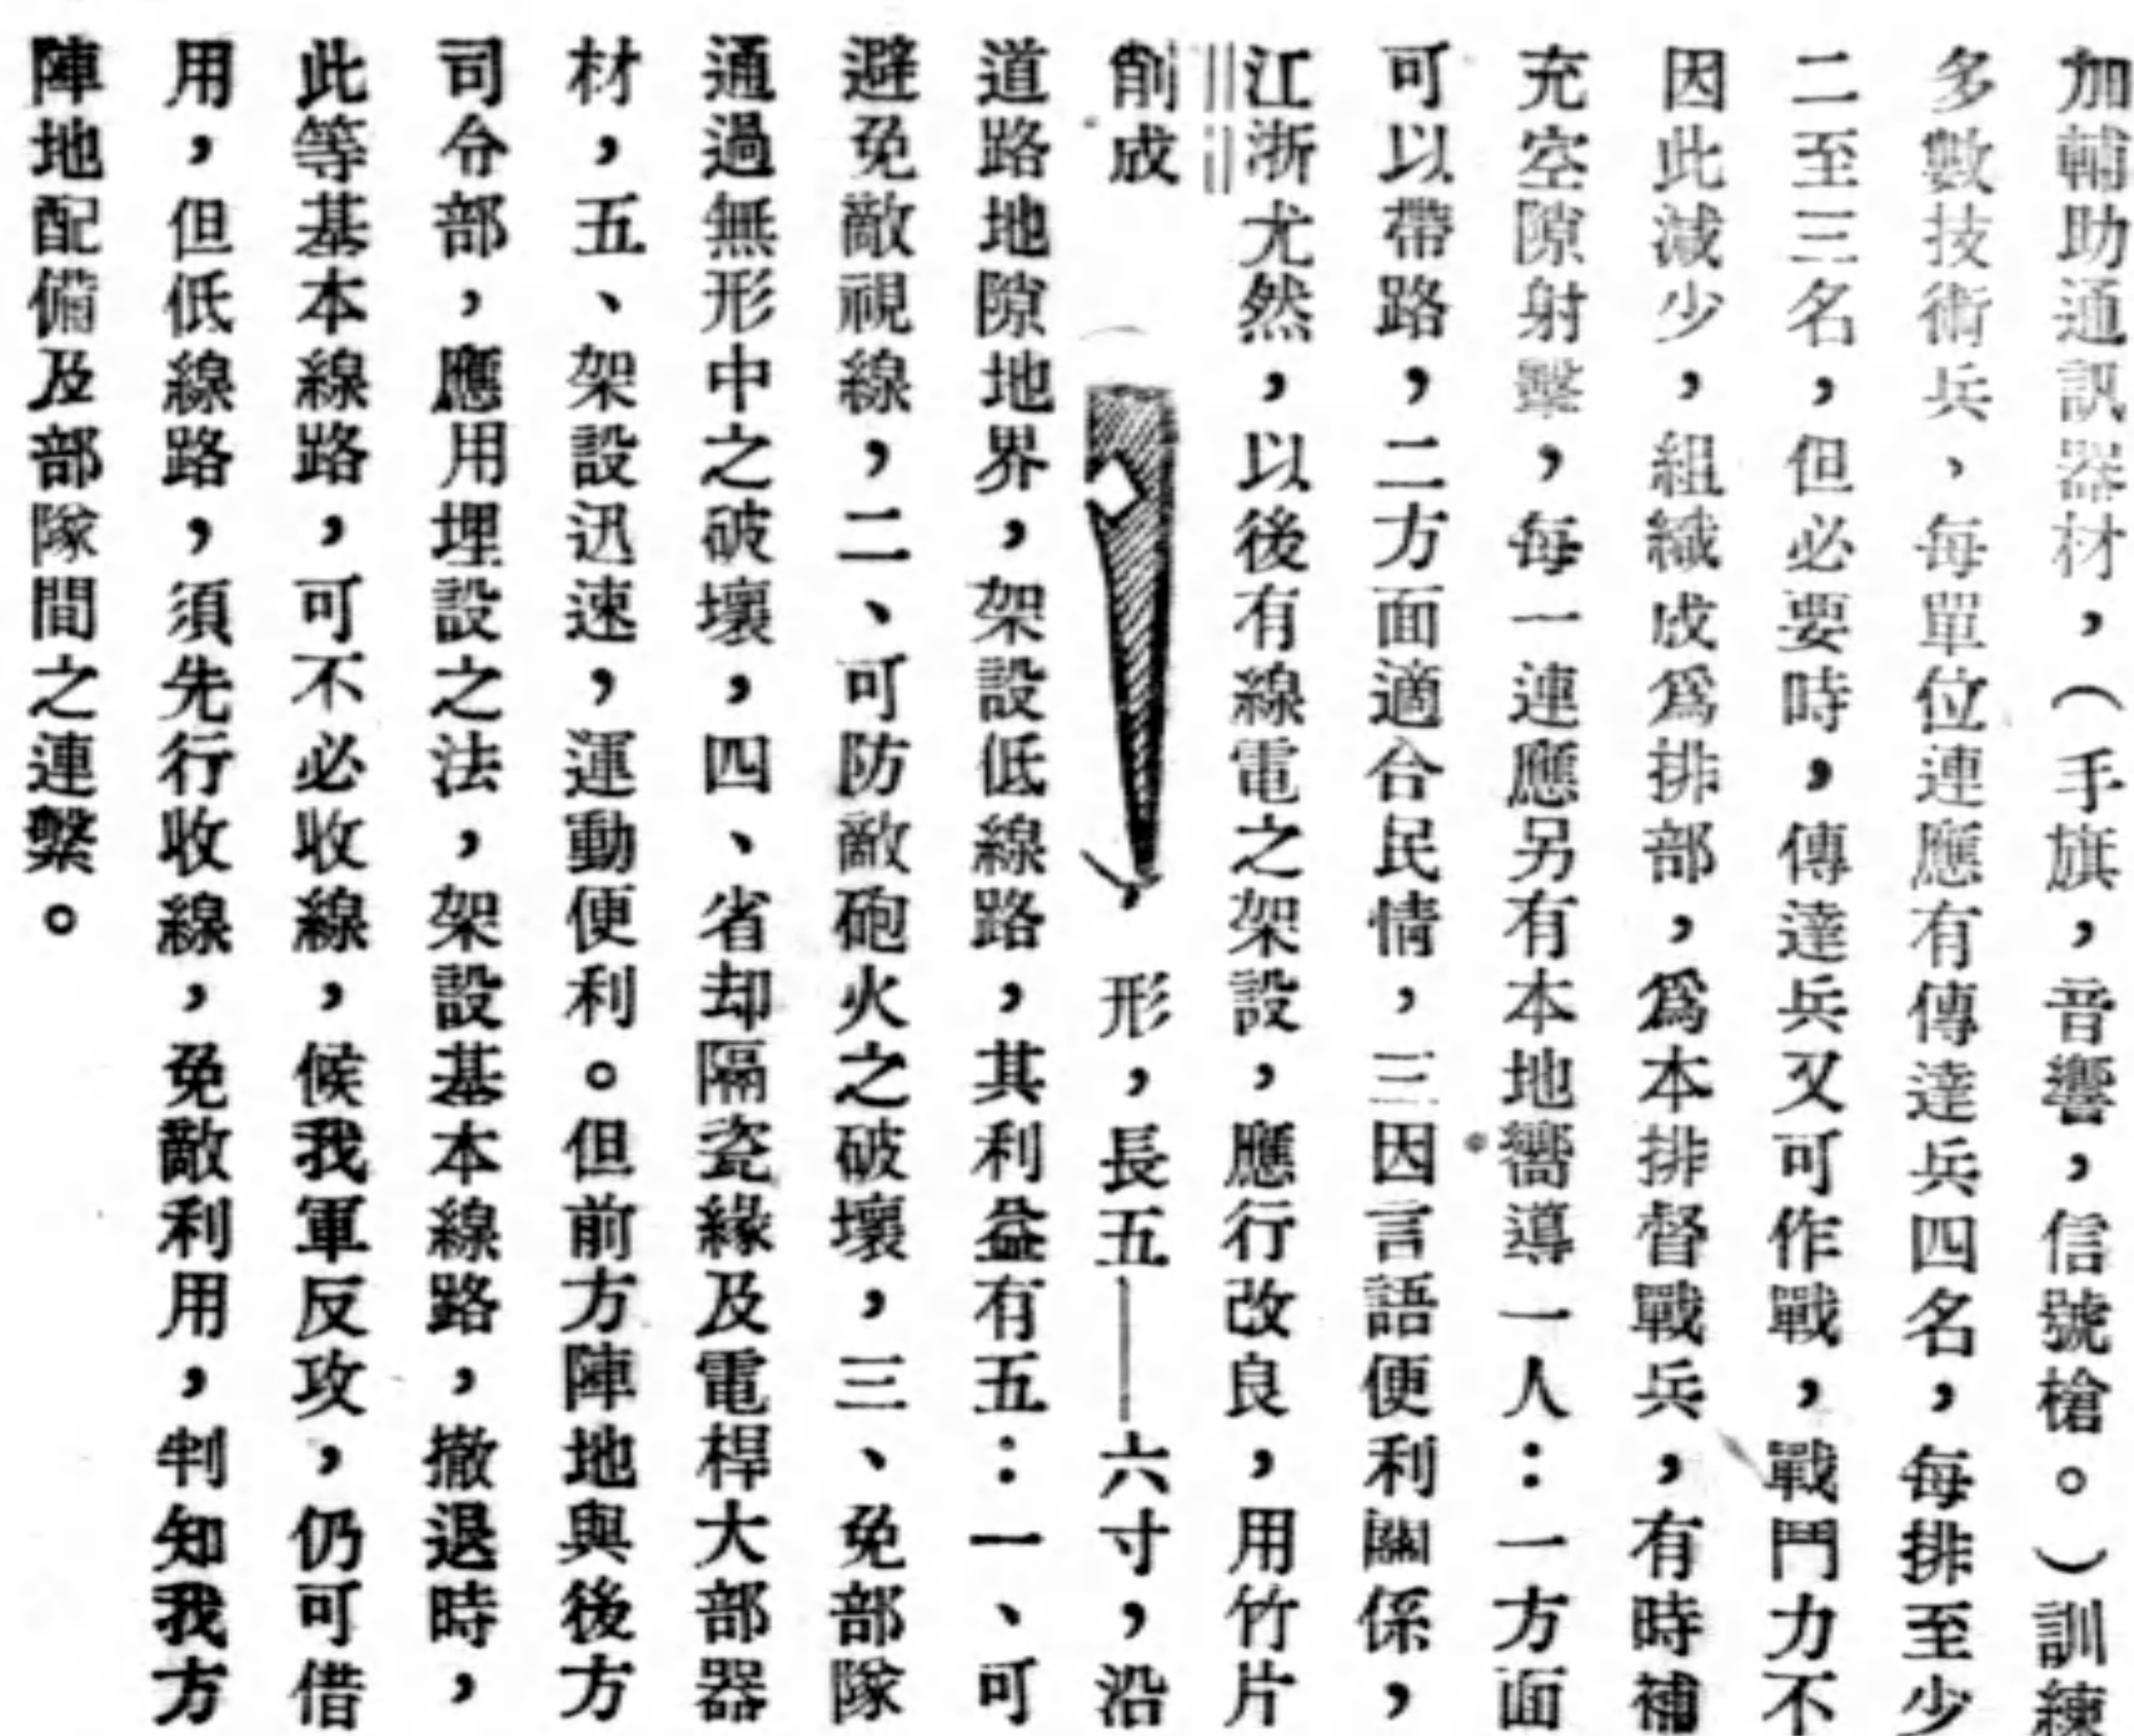 加輔助通訊器材，（手旗，音響，信號槍。）訓練
多數技術兵、每單位連應有傳達兵四名，每排至少
二至三名，但必要時，傳達兵又可作戰，戰鬥力不
因此減少，組織成爲排部，爲本排督戰兵，有時補
充空隙射擊，每一連應另有本地嚮導一人：一方面
可以帶路，二方面適合民情，三因言語便利關係，
江浙尤然，以後有線電之架設，應行改良，用竹片
削成，形，長五——六寸，沿
道路地隙地界，架設低線路，其利益有五：一、可
避免敵視線，二、可防敵砲火之破壞，三、免部隊
通過無形中之破壞，四、省却隔瓷緣及電桿大部器
材，五、架設迅速，運動便利。但前方陣地與後方
司令部，應用埋設之法，架設基本線路，撤退時，
此等基本線路，可不必收線，候我軍反攻，仍可借
用，但低線路，須先行收線，免敵利用，判知我方
陣地配備及部隊間之連繫。